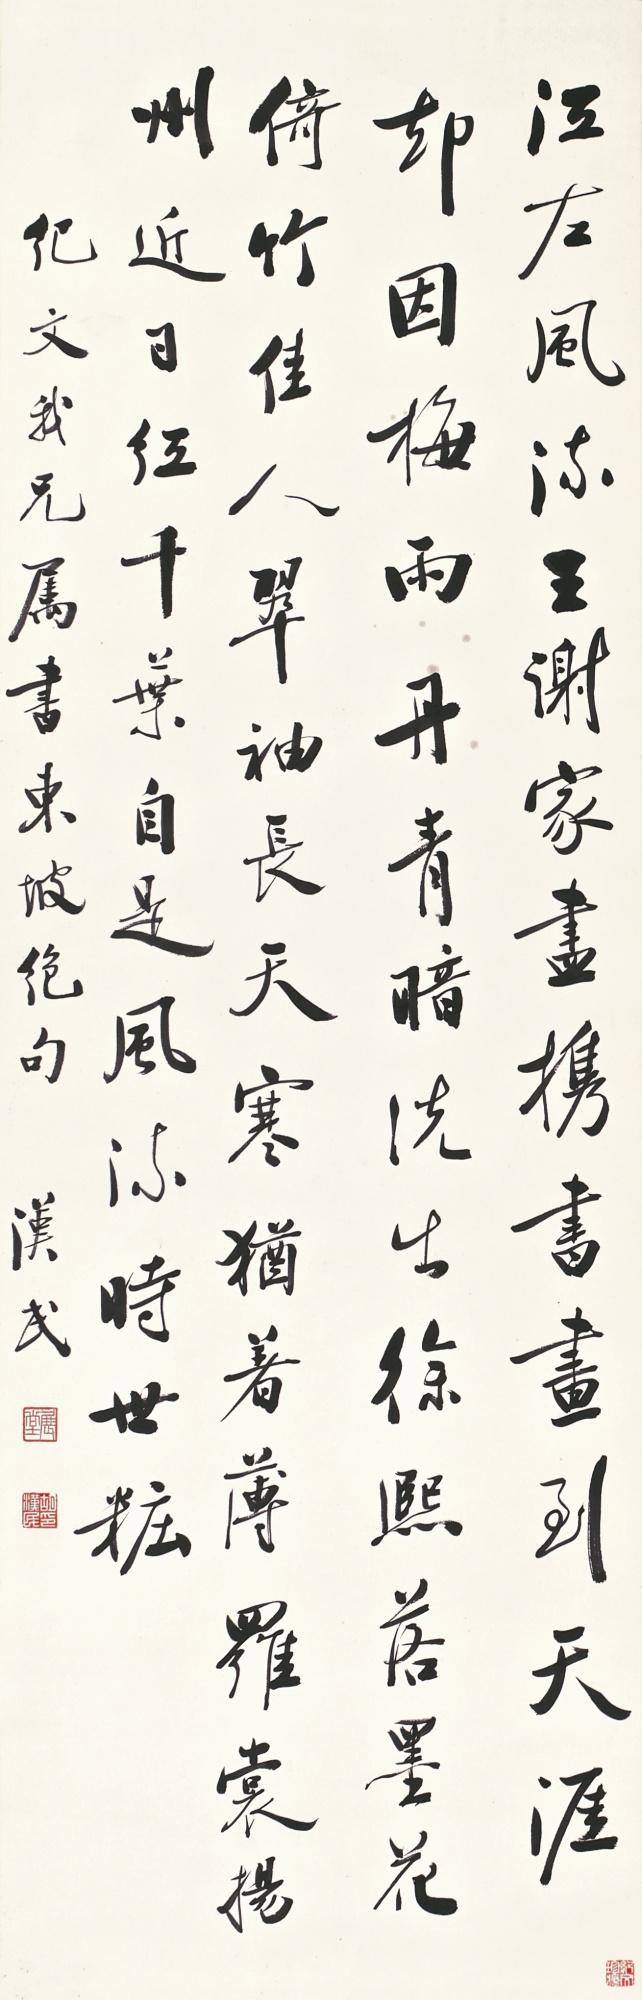 江左風流王謝家盡攜書畫到天涯
却因梅雨丹青暗洗出徐熙落墨花
倚竹佳人翠袖長天寒猶着薄羅裳揚
州近日紅千葉自是風流時世粧
紀文我兄屬書東坡絕句
漢民
展堂
胡漢民